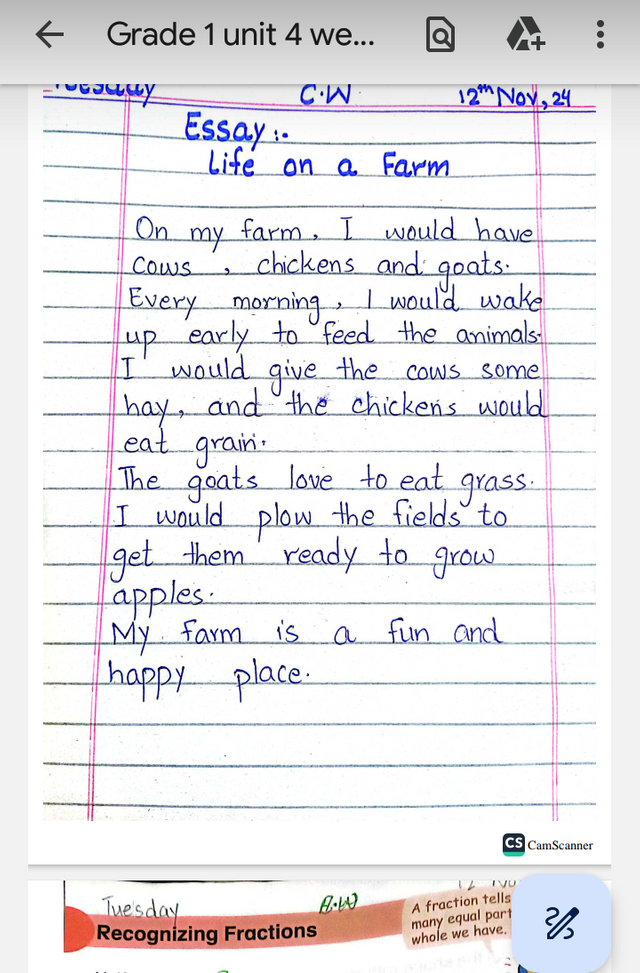 Grade 1 unit 4 we...
Tuesday C.W 12th Nov, 24
Essay :-
Life on a Farm
On my farm, I would have
cows, chickens and goats.
Every morning, I would wake
up early to feed the animals.
I would give the cows some
hay, and the chickens would
eat grain.
The goats love to eat grass.
I would plow the fields to
get them ready to grow
apples.
My farm is a fun and
happy place.
CS CamScanner
Tuesday
Recognizing Fractions
A fraction tells
many equal part
whole we have.